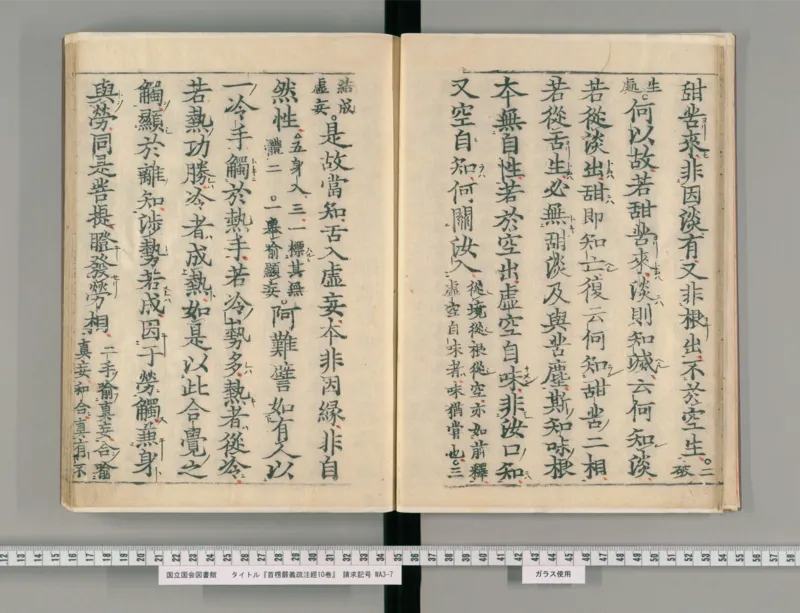 甜苦來非因淡有又非根出不於空生。二破
生處。何以故若甜苦來淡則知滅云何知淡
若從淡出甜即知亡復云何知甜苦二相
若從舌生必無甜淡及與苦塵斯知味根
本無自性若於空出虛空自味非汝口知
又空自知何關汝入從境從根從空亦如前釋虛空自味者味猶嘗也。三
結成虛妄。是故當知舌入虛妄本非因緣非自
然性。五身入三。一標其無體二。一舉喻顯妄。阿難譬如有人以
一冷手觸於熱手若冷勢多熱者從冷
若熱功勝冷者成熱如是以此合覺之
觸顯於離知涉勢若成因于勞觸兼身
與勞同是菩提瞪發勞相二手喻真妄合喻真妄和合真有不
国立国会図書館 タイトル『首楞嚴義疏注經10巻』 請求記号 WA3-7
ガラス使用